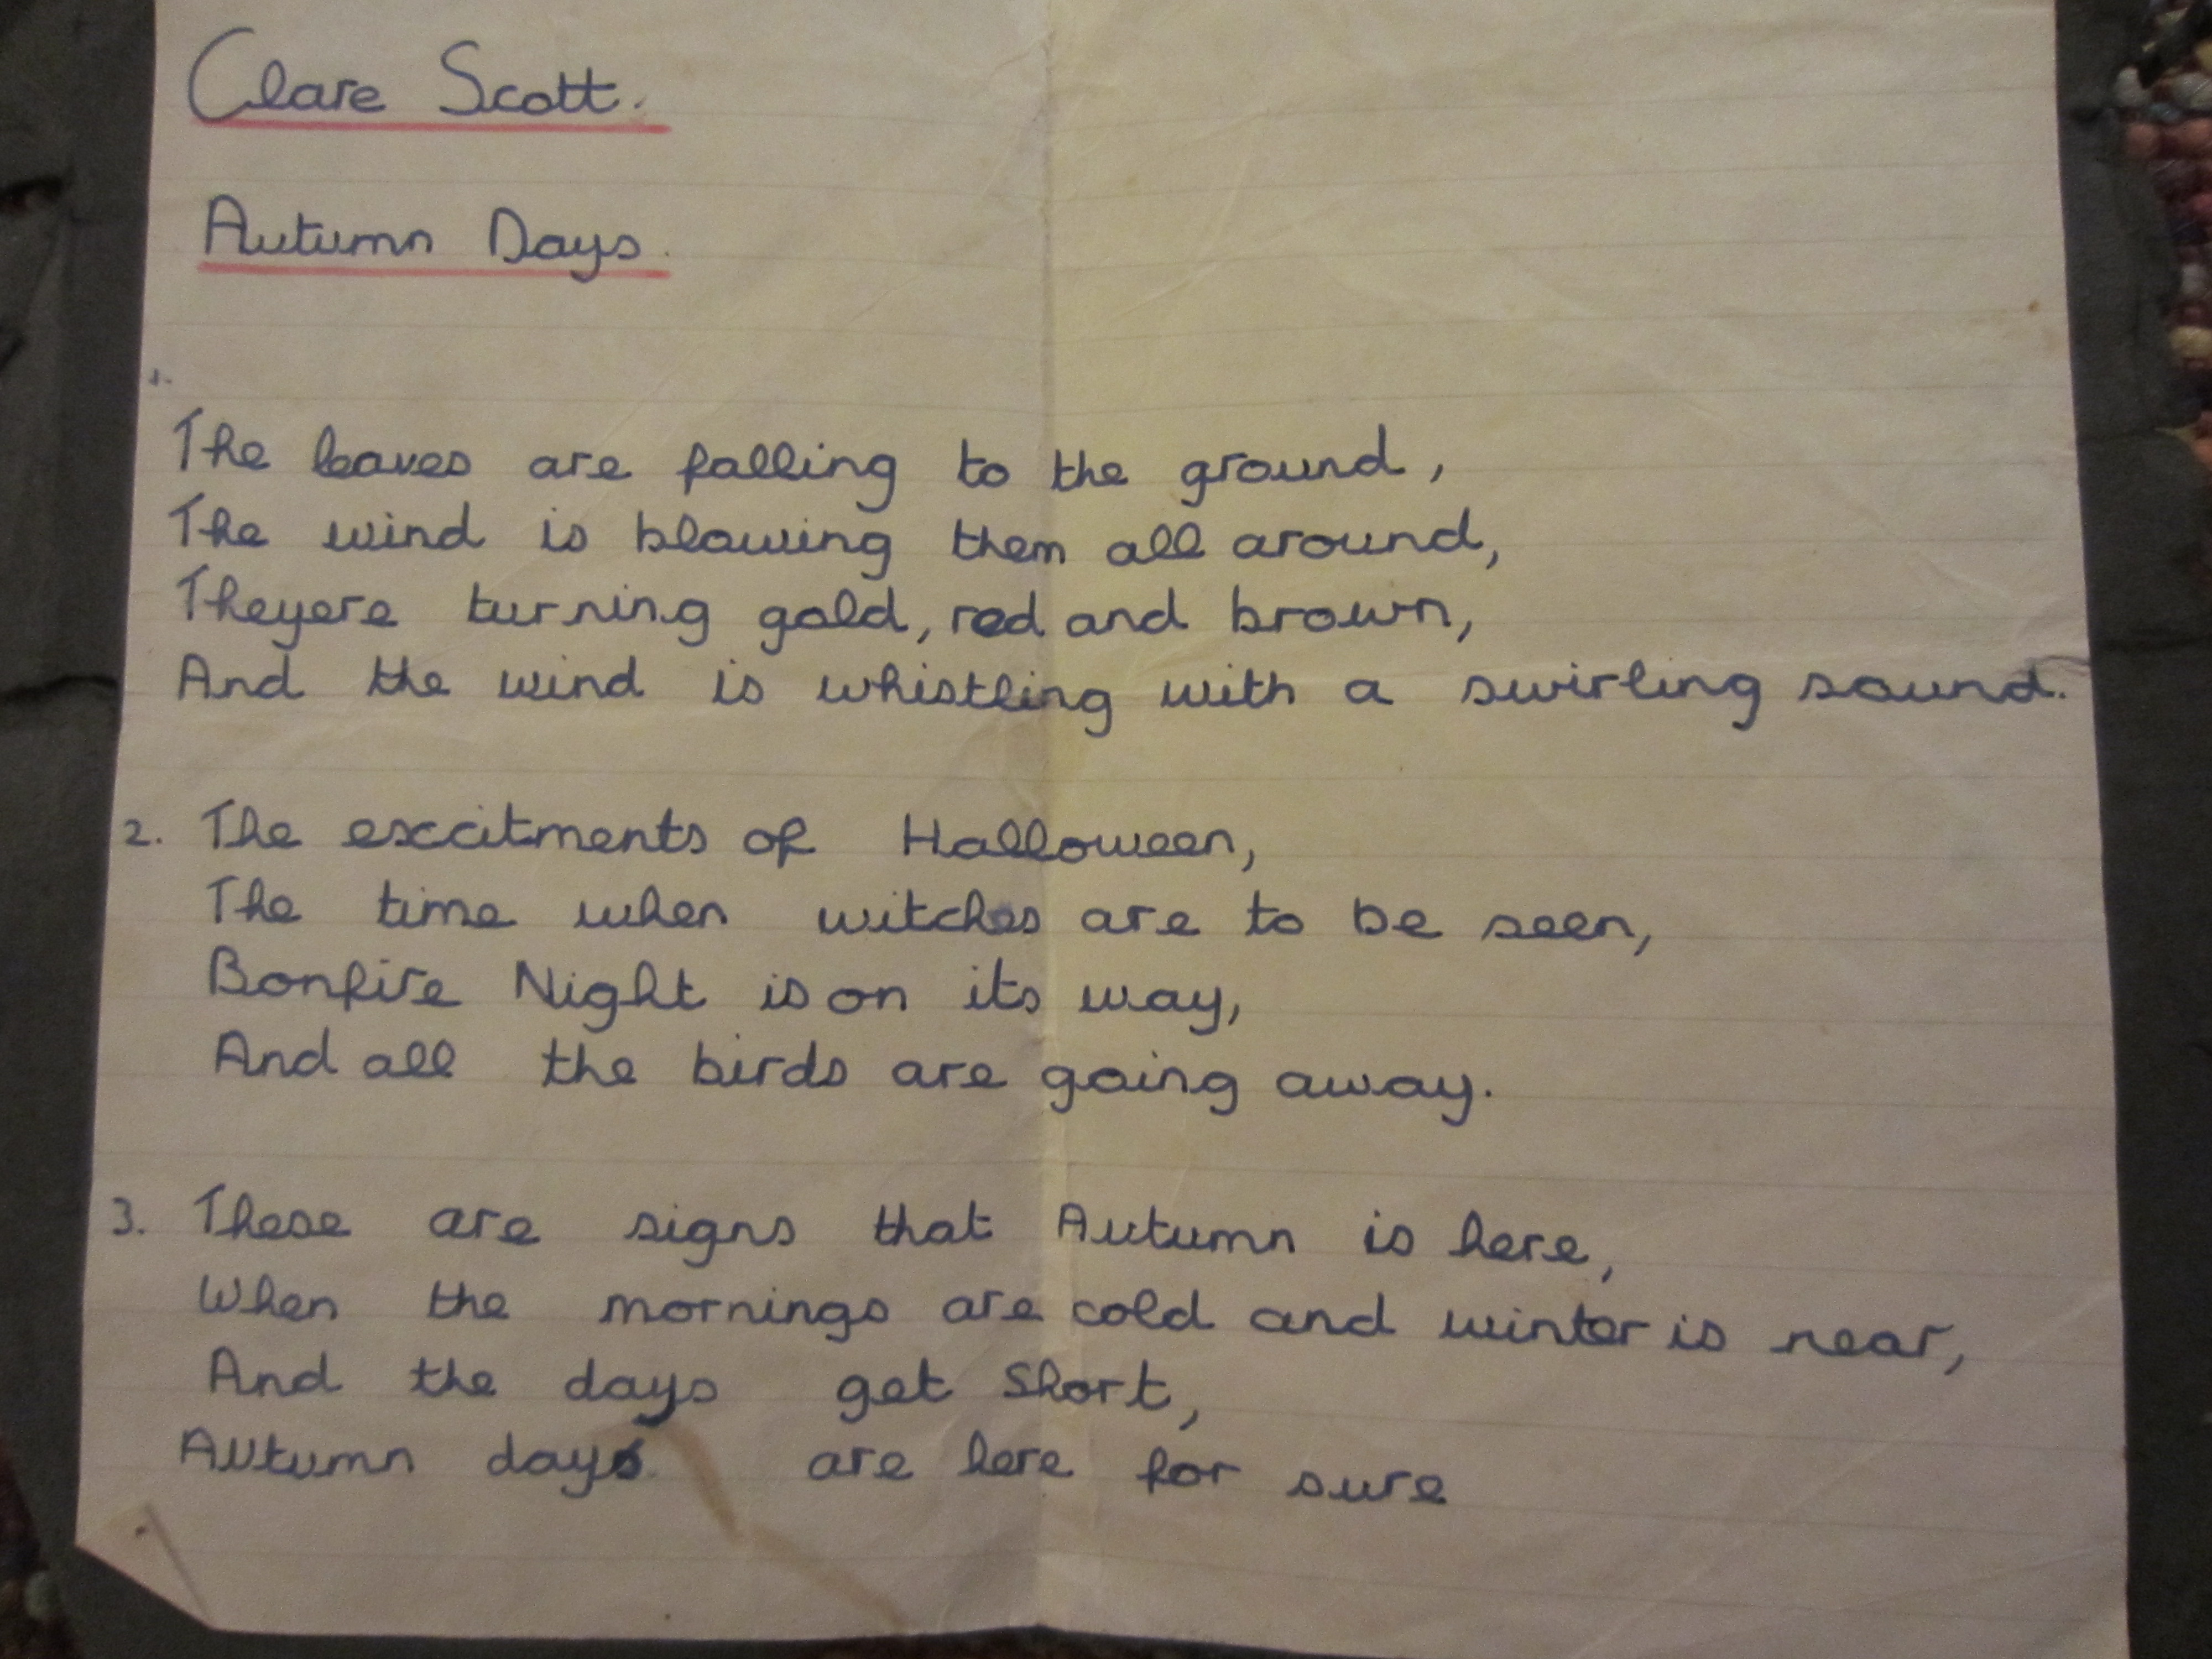 Clare Scott.
Autumn Days.
1.
The leaves are falling to the ground,
The wind is blowing them all around,
Theyere turning gold, red and brown,
And the wind is whistling with a swirling sound.
2. The excitments of Halloween,
The time when witches are to be seen,
Bonfire Night is on its way,
And all the birds are going away.
3. These are signs that Autumn is here,
When the mornings are cold and winter is near,
And the days get short,
Autumn days are here for sure